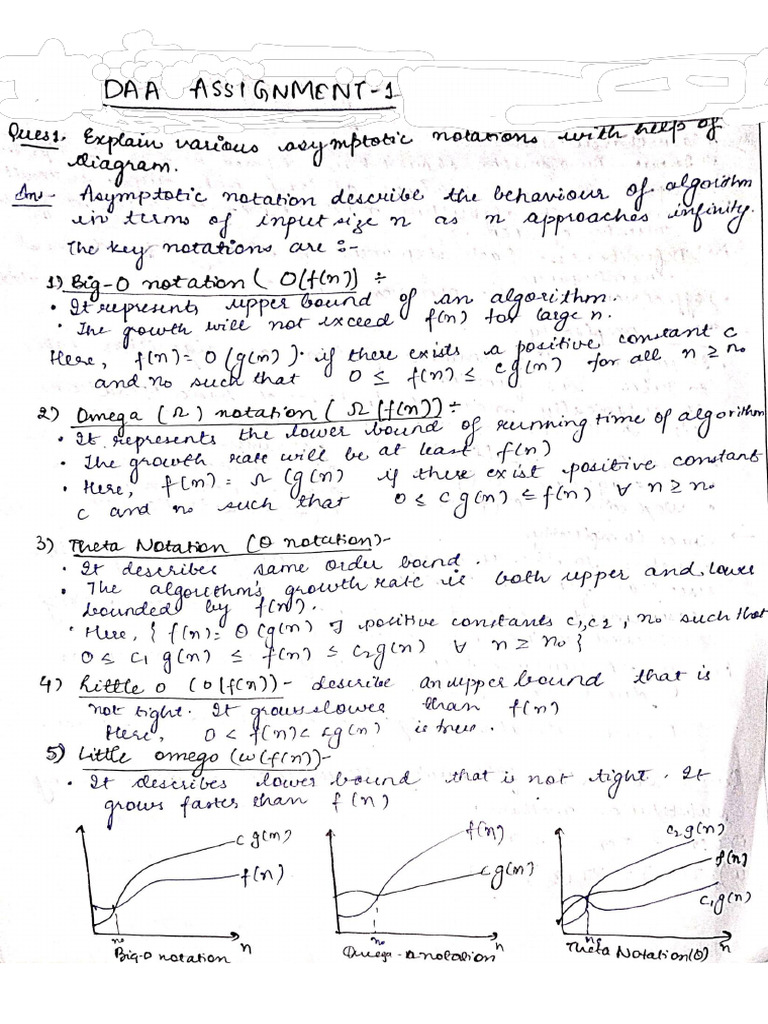 DAA ASSIGNMENT-1
Ques1. Explain various asymptotic notations with help of
diagram.
Ans- Asymptotic notation describe the behaviour of algorithm
in terms of input size n as n approaches infinity.
The key notations are :-
1) Big-O notation ( O(f(n)) ÷
• It represents upper bound of an algorithm.
• The growth will not exceed f(n) for large n.
Here, f(n) = O(g(n)). if there exists a positive constant c
and n₀ such that 0 ≤ f(n) ≤ cg(n) for all n ≥ n₀
2) Omega (Ω) notation ( Ω(f(n)) ÷
• It represents the lower bound of running time of algorithm
• The growth rate will be at least f(n)
• Here, f(n) = Ω(g(n) if there exist positive constant
c and n₀ such that 0 ≤ cg(n) ≤ f(n) ∀ n ≥ n₀
3) Theta Notation (Θ notation)-
• It describes same order bound.
• The algorithm's growth rate is both upper and lower
bounded by f(n).
• Here, { f(n) = Θ(g(n) ∃ positive constants c₁, c₂, n₀ such that
0 ≤ c₁ g(n) ≤ f(n) ≤ c₂g(n) ∀ n ≥ n₀ }
4) Little o (o(f(n))- describe an upper bound that is
not tight. It grows slower than f(n)
Here, 0 < f(n) < cg(n) is true.
5) Little omego (ω(f(n))-
• It describes lower bound that is not tight. It
grows faster than f(n)
c g(n)
f(n)
n₀
n
Big-O notation
f(n)
cg(n)
n₀
n
Omega-Ω notation
c₂g(n)
f(n)
c₁g(n)
n₀
n
Theta Notation(Θ)